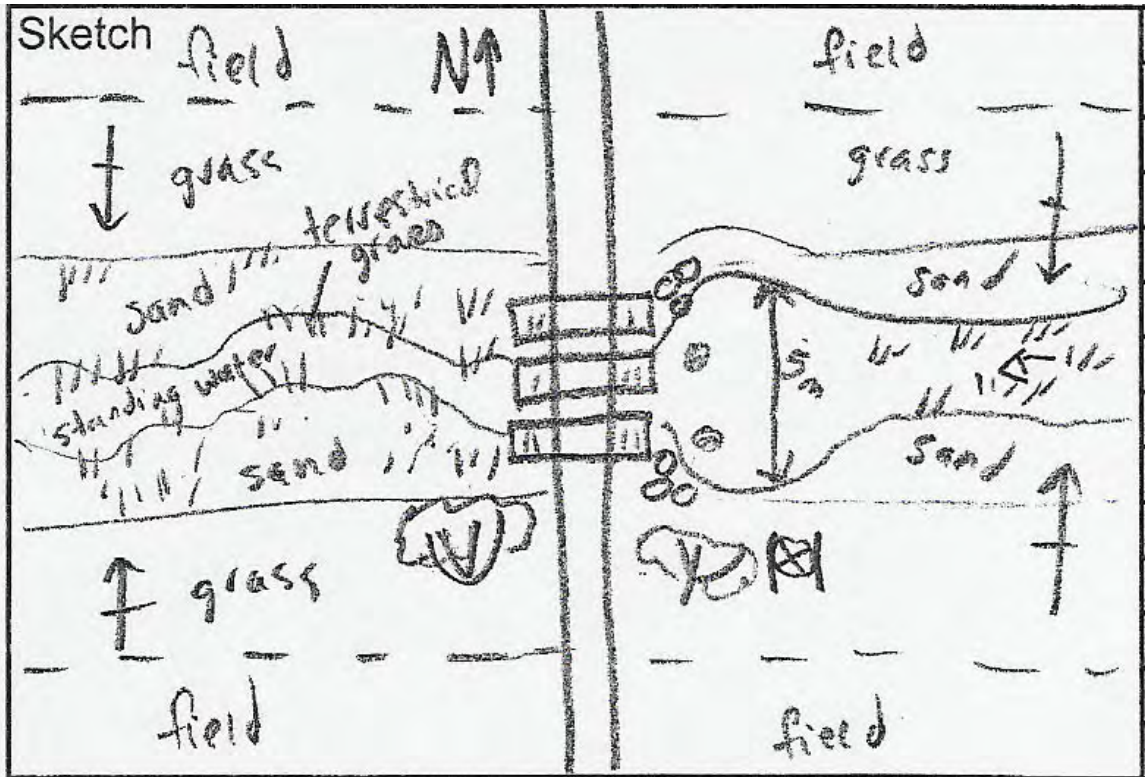 Sketch
field
N
field
grass
grass
terrestrial
grass
sand
sand
standing water
5m
sand
sand
grass
field
field